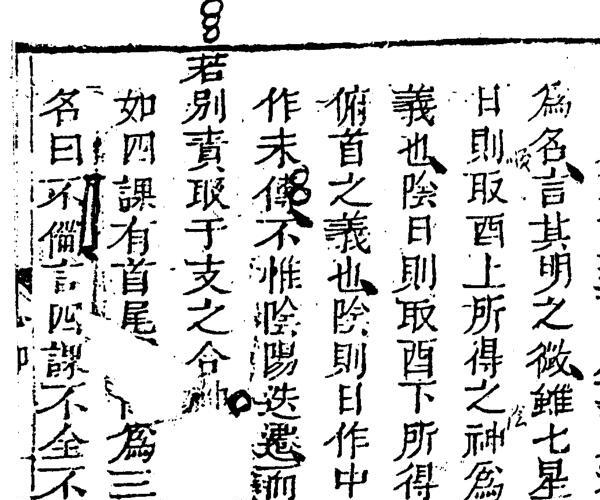 為名言其明之微雖七星
日則取酉上所得之神爲
義也陰日則取酉下所得
俯首之義也陰則日作中
作末傳不惟陰陽迭遷而
若別責取于支之合神
如四課有首尾爲三
名曰不備言四課不全不